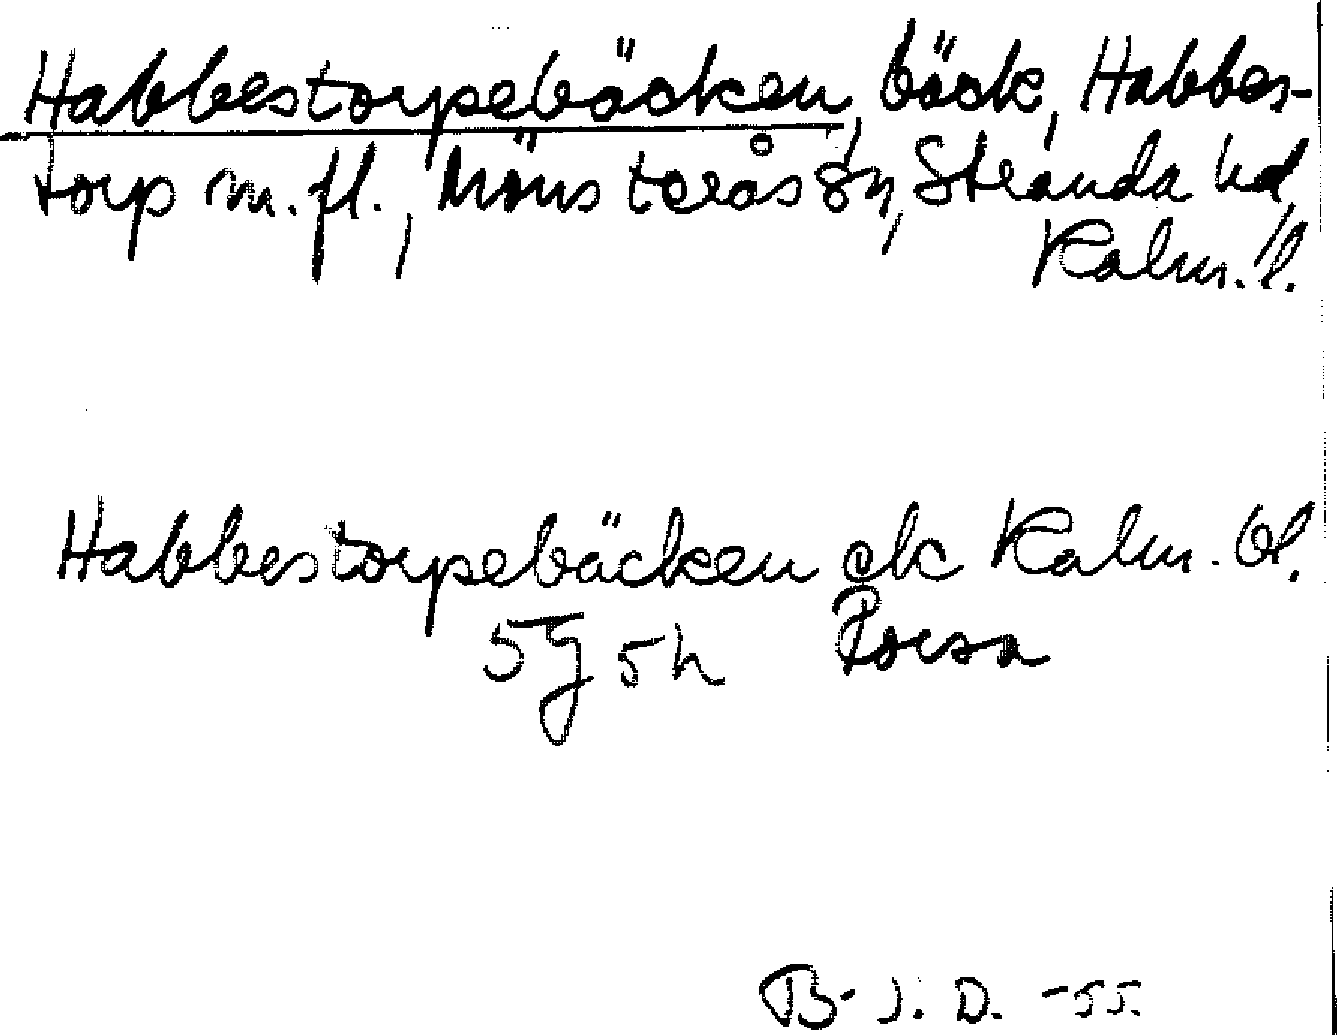 Habbestorpebäcken, bäck, Habbes-
torp m.fl., Mönsterås sn, Stranda hd,
Kalm. l.
Habbestorpebäcken ek Kalm. bl.
5G 5h Forsa
B-J. D. -55.